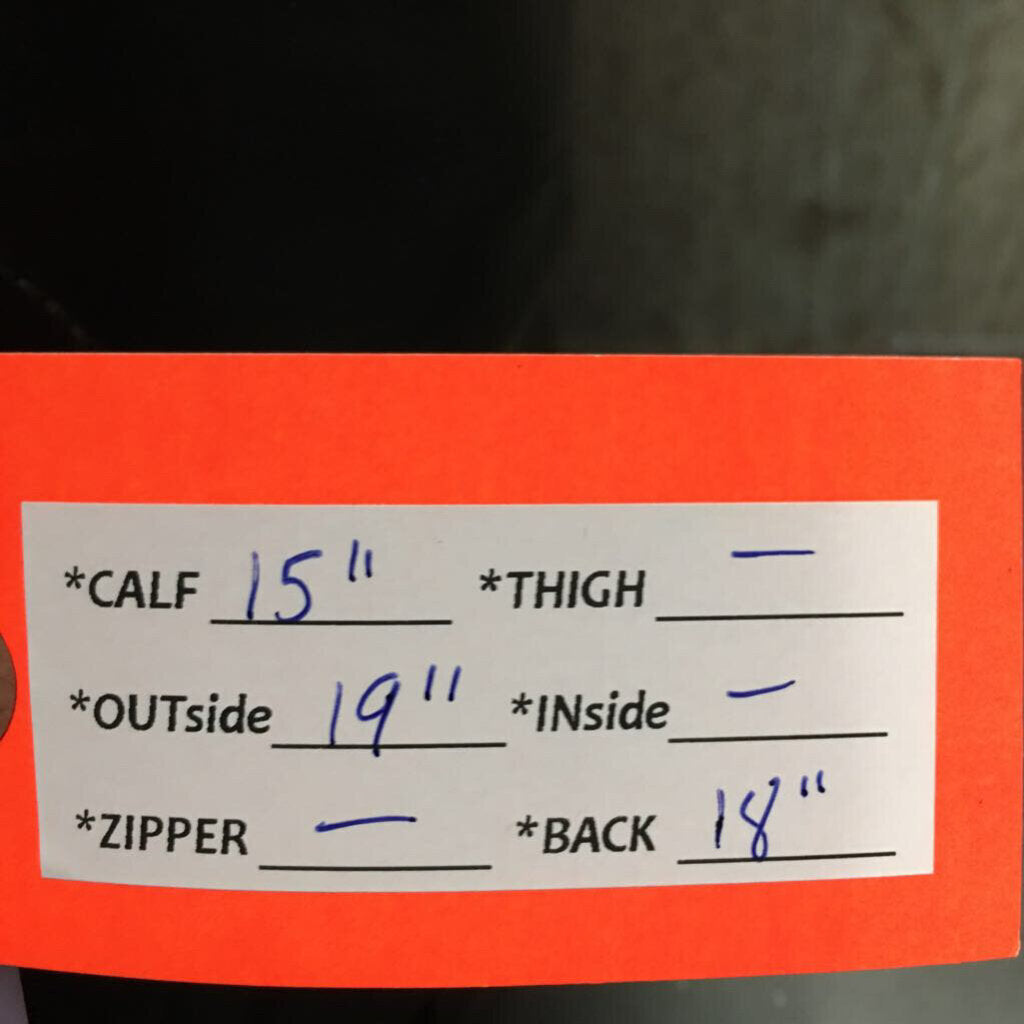 *CALF 15" *THIGH —
*OUTside 19" *INside —
*ZIPPER — *BACK 18"